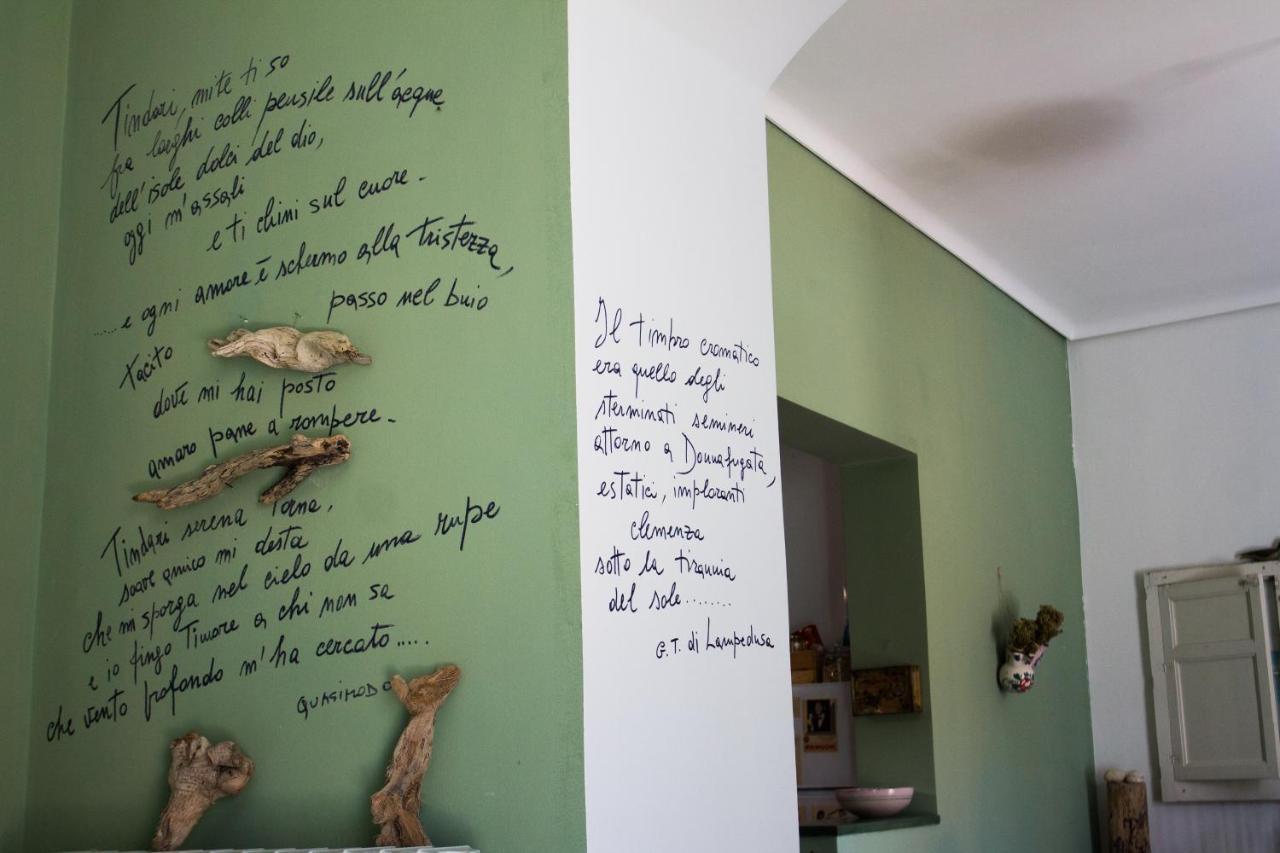 Tindari, mite ti so
fra larghi colli pensile sull'acque
dell'isole dolci del dio,
oggi m'assali
e ti chini sul cuore.
......e ogni amore è schermo alla tristezza,
passo nel buio
tacito
dove mi hai posto
amaro pane a rompere.
Tindari serena torna,
soave amico mi desta
che mi sporga nel cielo da una rupe
e io fingo timore a chi non sa
che vento profondo m'ha cercato.....
QUASIMODO
Il timbro cromatico
era quello degli
sterminati semineri
attorno a Donnafugata,
estatici, imploranti
clemenza
sotto la tirannia
del sole........
G.T. di Lampedusa